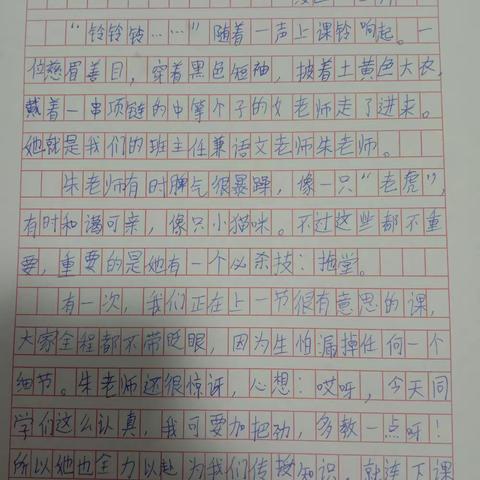 “铃铃铃……”随着一声上课铃响起。一
位慈眉善目，穿着黑色短袖，披着土黄色大衣，
戴着一串项链的中等个子的女老师走了进来。
她就是我们的班主任兼语文老师朱老师。
朱老师有时脾气很暴躁，像一只“老虎”，
有时和谒可亲，像只小猫咪。不过这些都不重
要，重要的是她有一个必杀技：拖堂。
有一次，我们正在上一节很有意思的课，
大家全程都不带眨眼，因为生怕漏掉任何一个
细节。朱老师还很惊讶，心想：哎呀，今天同
学们这么认真，我可要加把劲，多教一点呀！
所以她也全力以赴为我们传授知识，就连下课